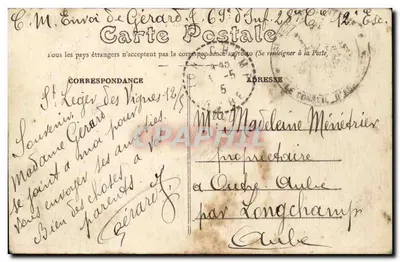 C. M. Envoi de Gérard J. 69e d'Inf. 28e Cie 12e Esc.
Carte Postale
Tous les pays étrangers n'acceptent pas la correspondance au recto (Se renseigner à la Poste)
CORRESPONDANCE
ADRESSE
St Léger des Vignes 12/5
Souvenir
Madame Gérard
se joint à moi pour
vous envoyer ses amitiés.
Bien des choses à vos
parents.
Gérard J.
Melle Madeleine Ménétrier
propriétaire
à Outre-Aube
par Longchamp
Aube
CPArama.com